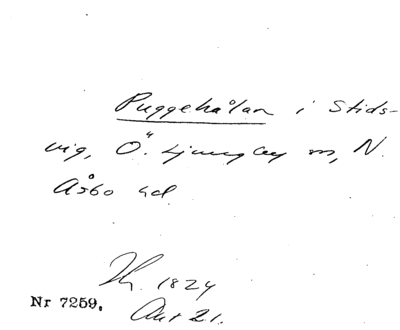 Puggehålan i Stids-
vig, Ö. Ljungby sn, N.
Åsbo hd.
1824
Nr 7259. Akt 21.